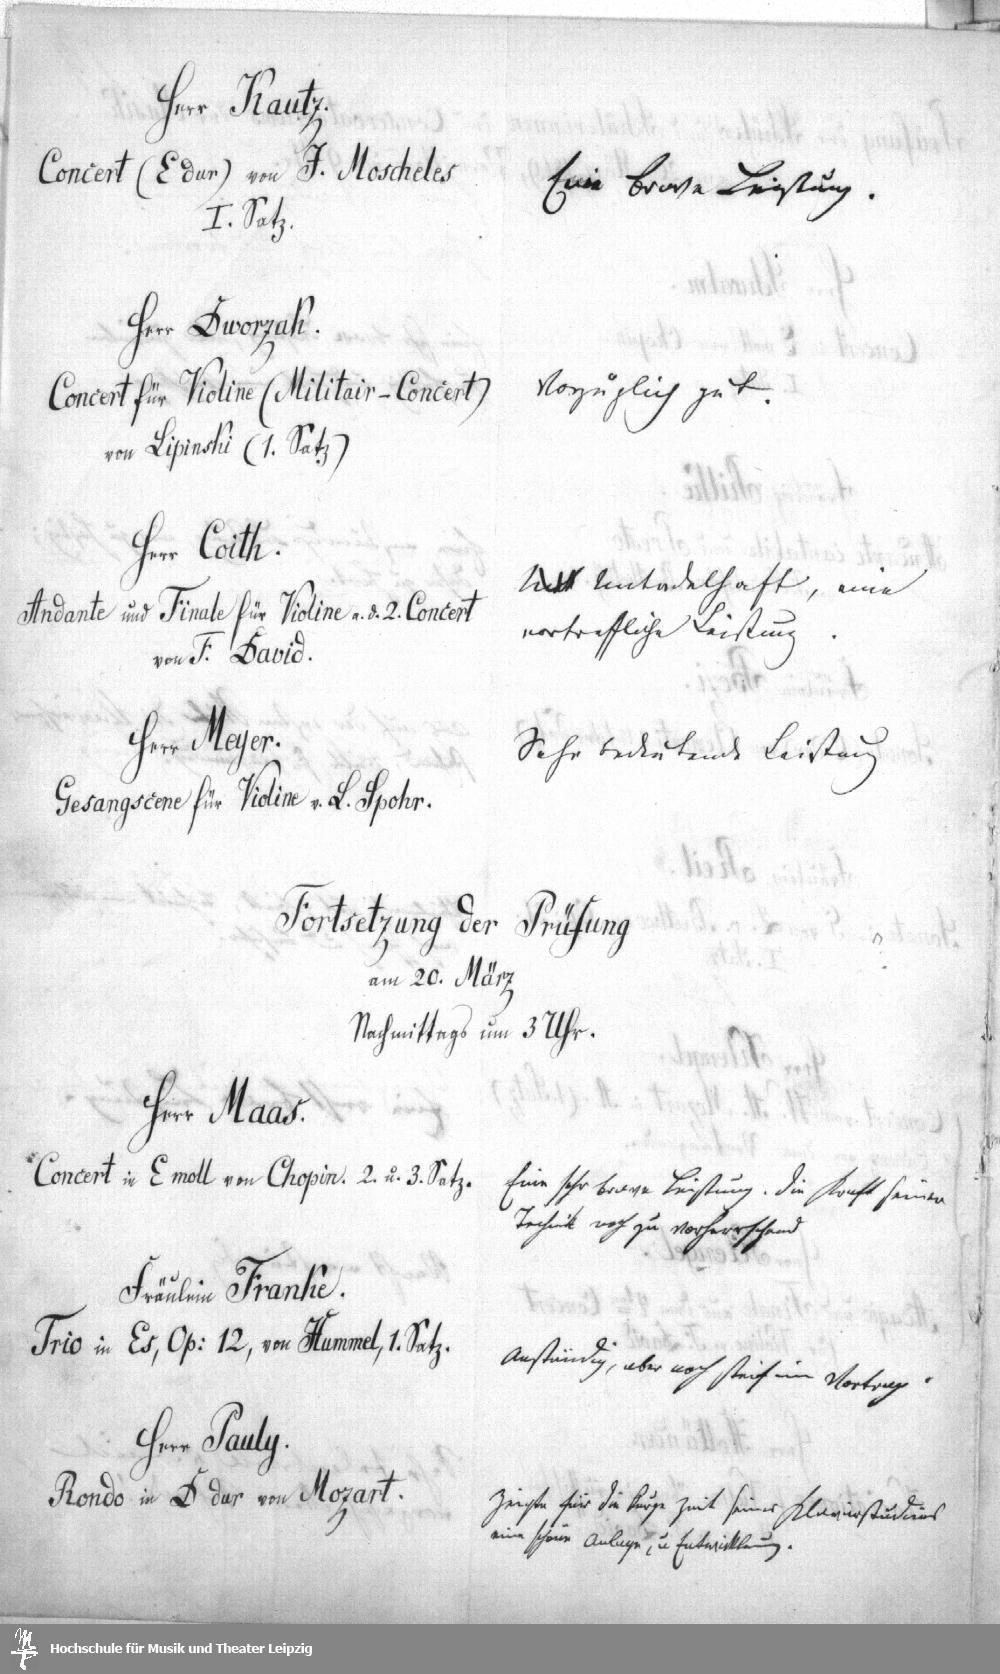 Herr Kautz.
Concert (E dur) von J. Moscheles
I. Satz.
Eine brave Leistung.
Herr Dworzak.
Concert für Violine (Militair-Concert)
von Lipinski (1. Satz)
Vorzüglich gut.
Herr Coith.
Andante und Finale für Violine a. d. 2. Concert
von F. David.
untadelhaft, eine
vortreffliche Leistung.
Herr Meyer.
Gesangscene für Violine v. L. Spohr.
Sehr bedeutende Leistung
Fortsetzung der Prüfung
am 20. März
Nachmittags um 3 Uhr.
Herr Maas.
Concert in E moll von Chopin. 2. u. 3. Satz.
Eine sehr brave Leistung. die Kraft seiner
Technik noch zu vorherrschend
Fräulein Franke.
Trio in Es, Op: 12, von Hummel, 1. Satz.
Anständig, aber noch steif im Vortrag.
Herr Pauly.
Rondo in D dur von Mozart.
Zeigte für die kurze Zeit seines Klavierstudiums
eine schöne Anlage, u Entwicklung.
Hochschule für Musik und Theater Leipzig